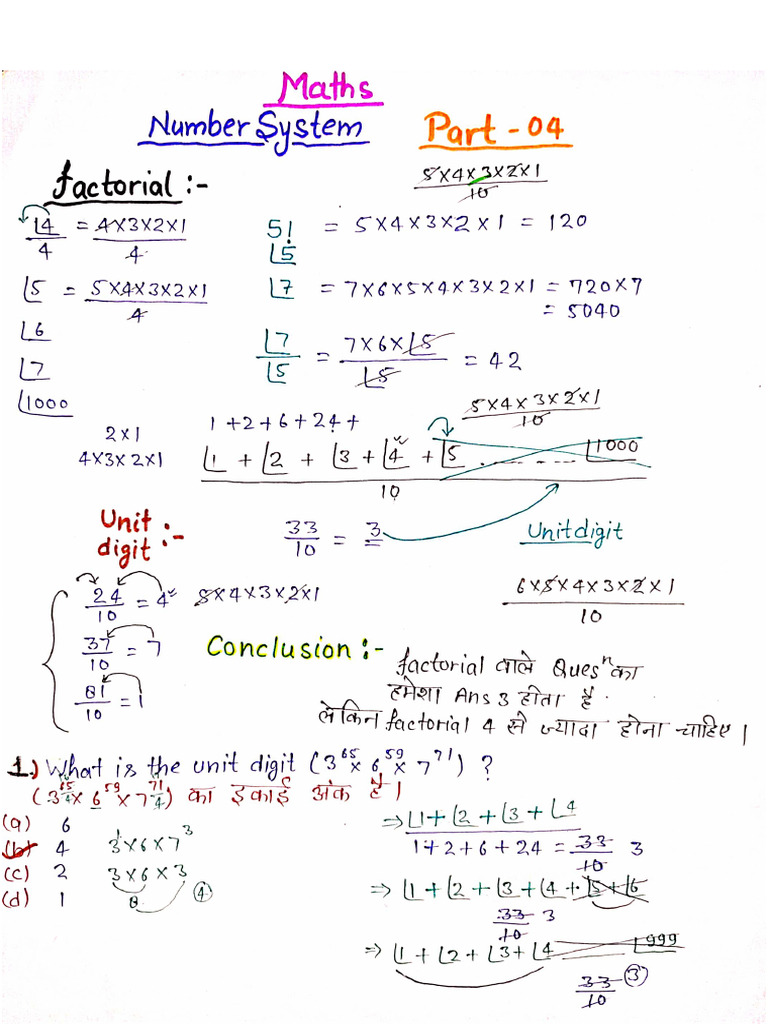 Maths
Number System Part - 04
factorial :-
5×4×3×2×1
10
⌊4 = 4×3×2×1
4 4
5! = 5×4×3×2×1 = 120
⌊5
⌊5 = 5×4×3×2×1
4
⌊7 = 7×6×5×4×3×2×1 = 720×7
= 5040
⌊6
⌊7
⌊1000
⌊7 = 7×6×⌊5 = 42
⌊5 ⌊5
5×4×3×2×1
10
2×1
4×3×2×1
1+2+6+24+
⌊1 + ⌊2 + ⌊3 + ⌊4 + ⌊5 ....... ⌊1000
10
Unit digit :-
33 = 3
10
Unit digit
24 = 4
10
5×4×3×2×1
6×5×4×3×2×1
10
37 = 7
10
81 = 1
10
Conclusion :-
factorial वाले Quesⁿ का
हमेशा Ans 3 होता है
लेकिन factorial 4 से ज्यादा होना चाहिए।
1.) What is the unit digit (3⁶⁵ × 6⁵⁹ × 7⁷¹) ?
(3^65/4 × 6⁵⁹ × 7^71/4) का इकाई अंक है।
(a) 6
(b) 4
(c) 2
(d) 1
3¹×6×7³
3×6×3
8 ④
⇒ ⌊1 + ⌊2 + ⌊3 + ⌊4
1+2+6+24 = 33 3
10
⇒ ⌊1 + ⌊2 + ⌊3 + ⌊4 + ⌊5 + ⌊6
33 3
10
⇒ ⌊1 + ⌊2 + ⌊3 + ⌊4 ⌊999
33 ③
10